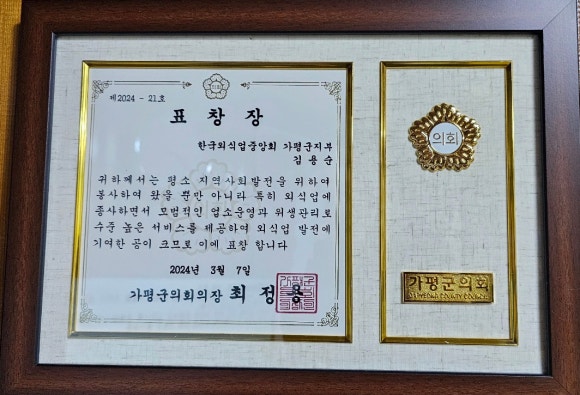 의회
제2024 - 21호
표 창 장
한국외식업중앙회 가평군지부
김 용 순
귀하께서는 평소 지역사회발전을 위하여
봉사하여 왔을 뿐만 아니라 특히 외식업에
종사하면서 모범적인 업소운영과 위생관리로
수준 높은 서비스를 제공하여 외식업 발전에
기여한 공이 크므로 이에 표창 합니다
2024년 3월 7일
가평군의회의장 최 정 용
의회
가평군의회
GAPYEONG COUNTY COUNCIL